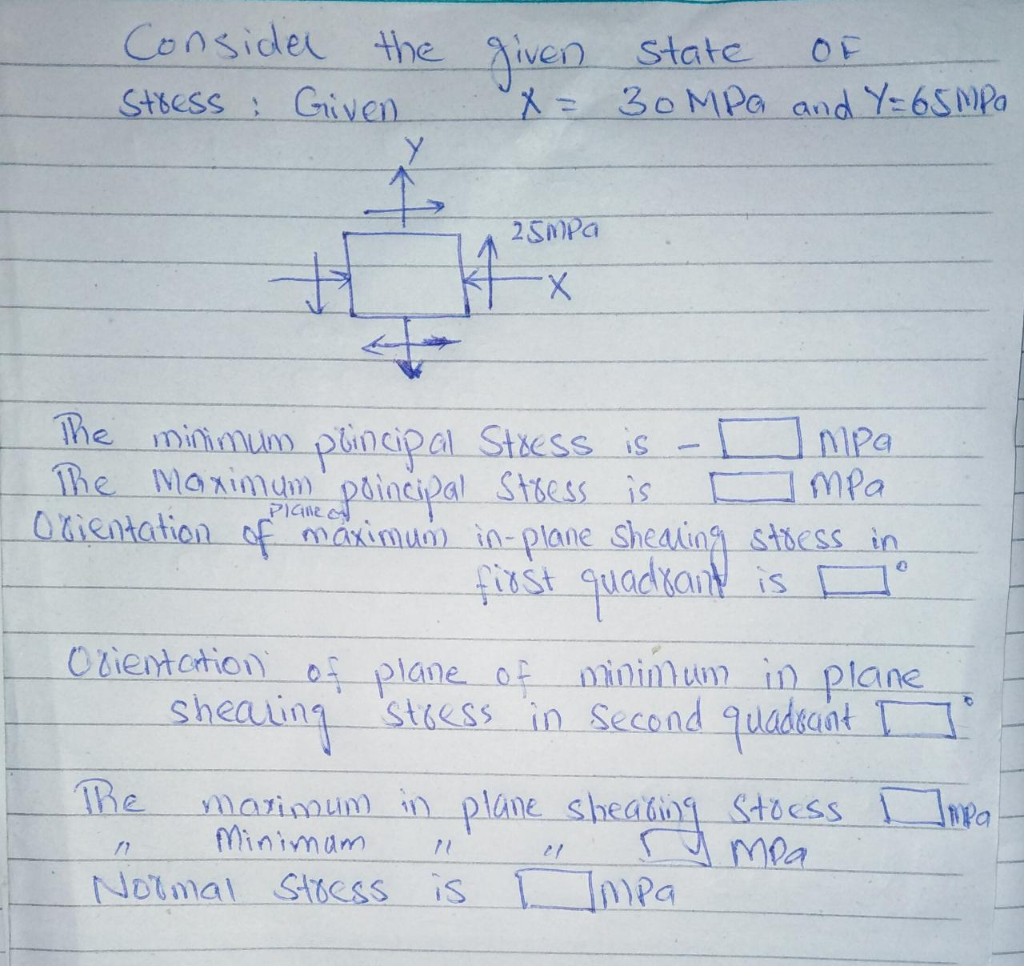 Consider the given state OF
Stress : Given X = 30 MPa and Y=65MPa
Y
25MPa
X
The minimum principal Stress is - MPa
The Maximum principal Stress is MPa
Orientation of plane of maximum in-plane shearing stress in
first quadrant is °
Orientation of plane of minimum in plane
shearing stress in second quadrant °
The maximum in plane shearing Stress MPa
" Minimum " " MPa
Normal Stress is MPa